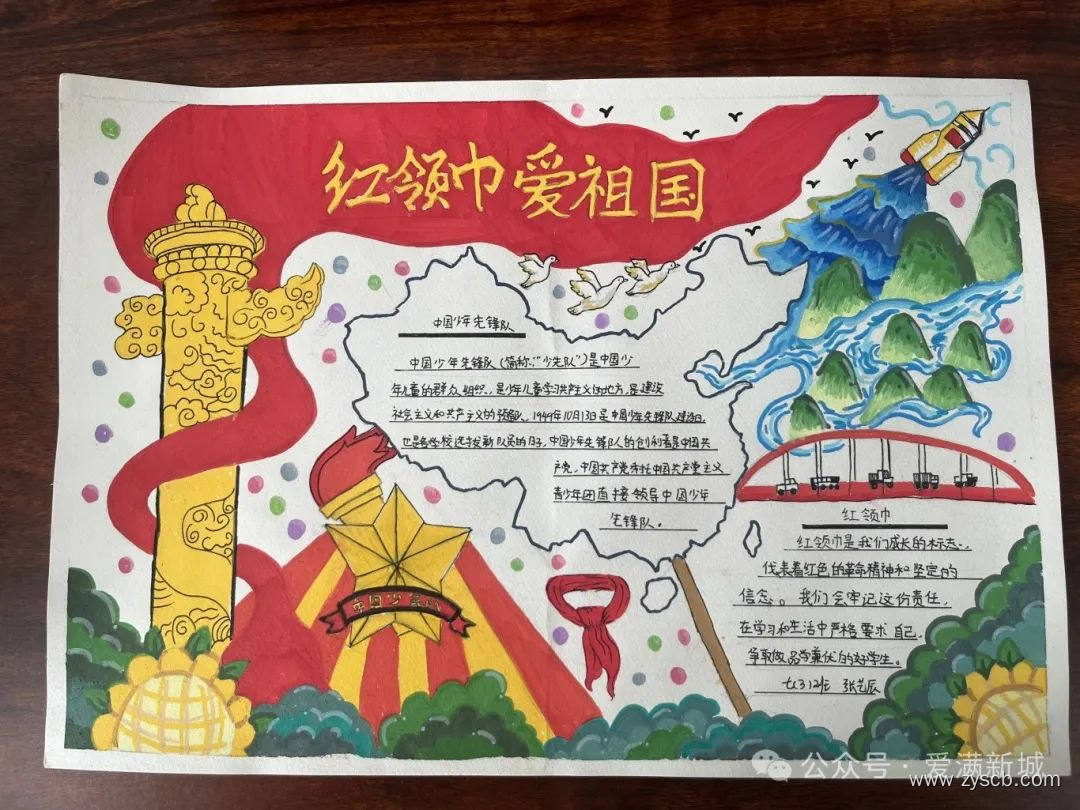 红领巾爱祖国
中国少年先锋队
中国少年先锋队(简称:"少先队")是中国少
年儿童的群众组织,是少年儿童学习共产主义的地方,是建设
社会主义和共产主义的预备队。1949年10月13日是中国少年先锋队建队日,
也是各学校选拔新队员的日子,中国少年先锋队的创利者是中国共
产党,中国共产党委托中国共产党主义
青少年团直接领导中国少年
先锋队。
红领巾
红领巾是我们成长的标志,
代表着红色的革命精神和坚定的
信念。我们会牢记这份责任,
在学习和生活中严格要求自己,
争取做品学兼优的好学生。
七(3)班 张艺辰
公众号·爱满新城
www.zyscb.com